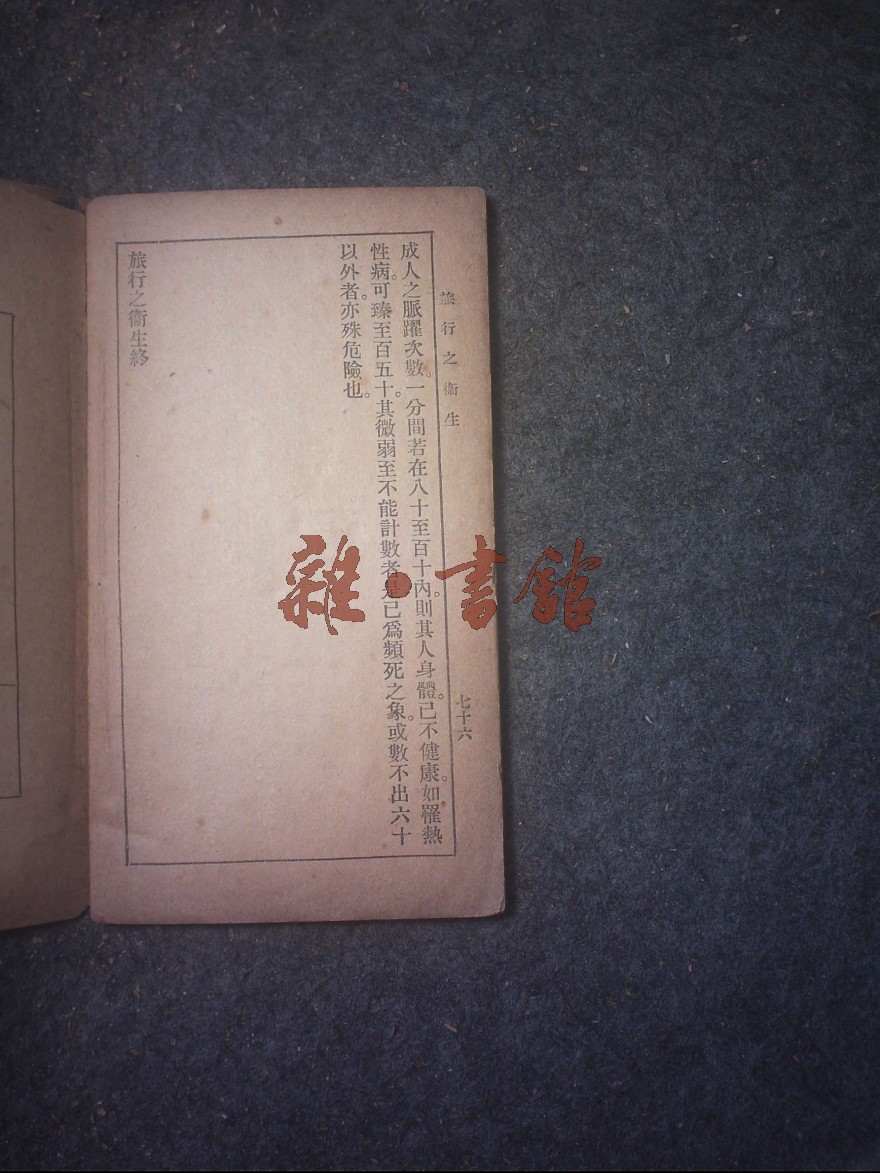 旅行之衞生
七十六
成人之脈躍次數。一分間若在八十至百十內。則其人身體。已不健康。如罹熱
性病。可臻至百五十。其微弱至不能計數者。是已爲頻死之象。或數不出六十
以外者。亦殊危險也。
旅行之衞生終
雜·書館